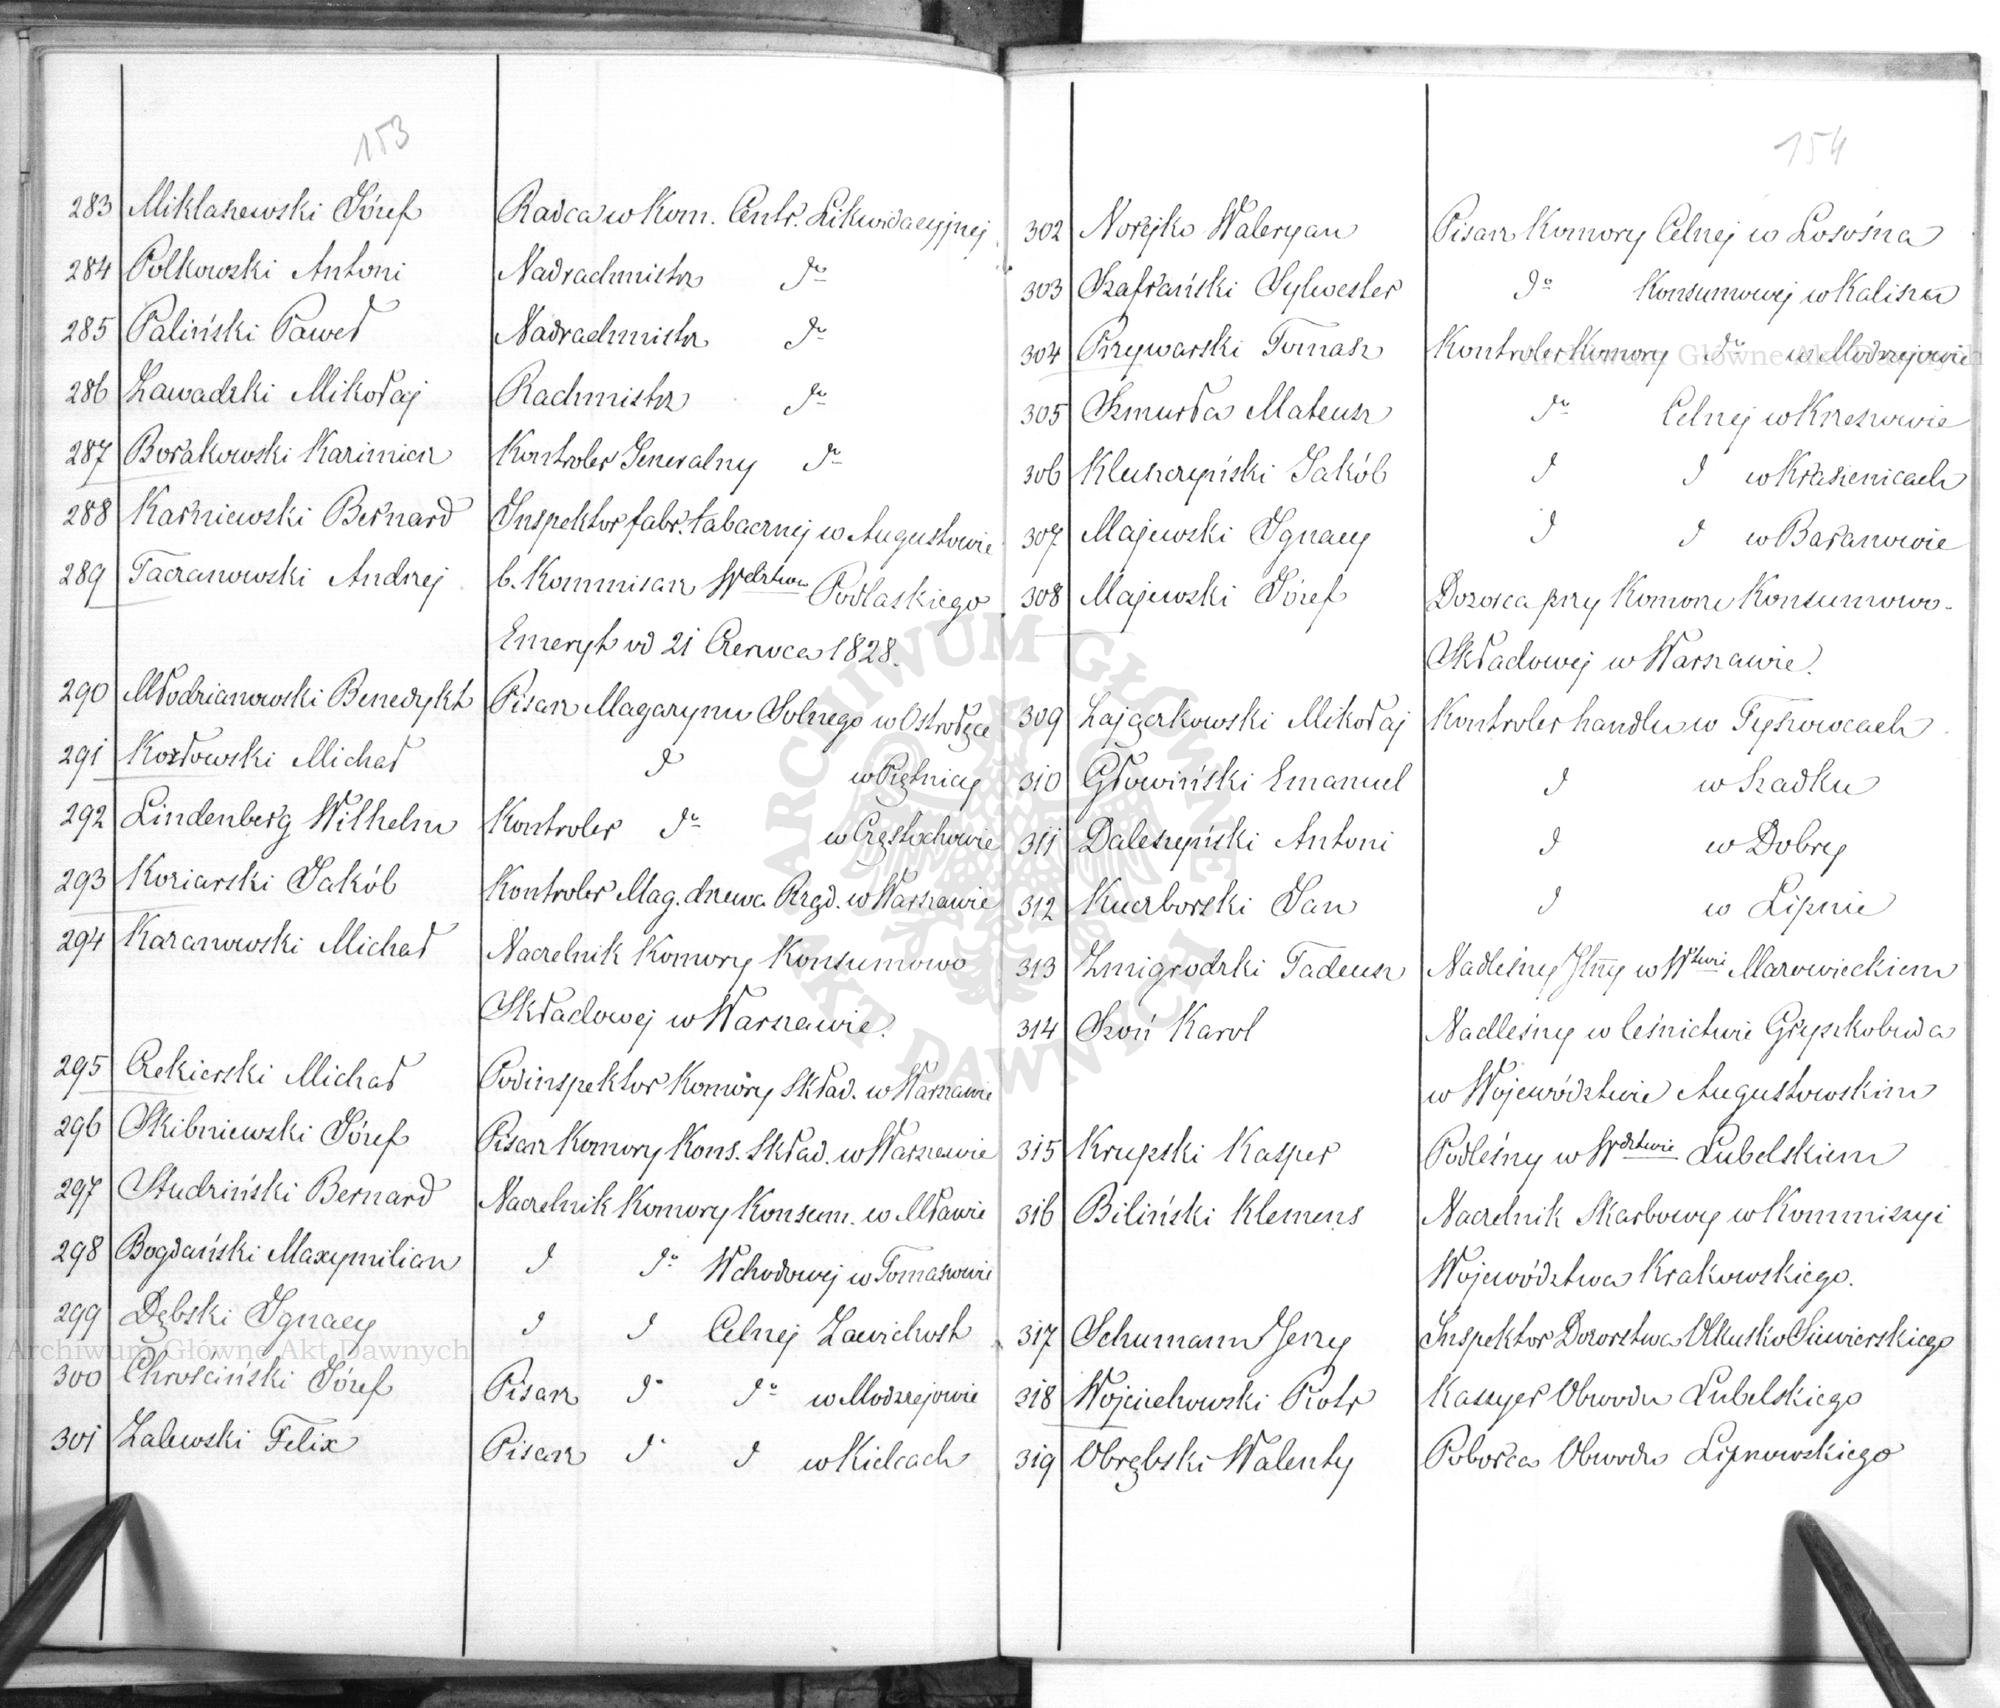 153
283 Miklaszewski Józef Radca w Kom. Centr. Likwidacyjnej
284 Polkowski Antoni Nadrachmistrz do
285 Paliński Paweł Nadrachmistrz do
286 Zawadzki Mikołaj Rachmistrz do
287 Borakowski Kazimierz Kontroler Generalny do
288 Karniewski Bernard Inspektor fabr. tabacznej w Augustowie
289 Taczanowski Andrzej b. Kommisarz Wdztwa Podlaskiego
Emeryt od 21 Czerwca 1828.
290 Młodzianowski Benedykt Pisarz Magazynu Solnego w Ostrołęce
291 Kozłowski Michał d w Piątnicy
292 Lindenberg Wilhelm Kontroler do w Częstochowie
293 Koziarski Jakób Kontroler Mag. drzewa Rząd. w Warszawie
294 Kazanowski Michał Naczelnik Komory Konsumowo
Składowej w Warszawie.
295 Czekierski Michał Podinspektor Komory Skład. w Warszawie
296 Skibniewski Józef Pisarz Komory Kons. Skład. w Warszawie
297 Studziński Bernard Naczelnik Komory Konsum. w Mławie
298 Bogdański Maxymilian d do Wchodowej w Tomaszowie
299 Dębski Ignacy d d Celnej Zawichost
300 Chrościński Józef Pisarz d do w Modrzejowie
301 Zalewski Felix Pisarz d d w Kielcach
154
302 Norejko Waleryan Pisarz Komory Celnej w Łosośna
303 Szafrański Sylwester do Konsumowej w Kaliszu
304 Przywarski Tomasz Kontroler Komory do w Modrzejowie
305 Szmurła Mateusz do Celnej w Krzeszowie
306 Kluszczyński Jakób d d w Kraszenicach
307 Majewski Ignacy d d w Baranowie
308 Majewski Józef Dozorca przy Komorze Konsumowo-
Składowej w Warszawie.
309 Zajączkowski Mikołaj Kontroler handlu w Tyszowcach
310 Głowiński Emanuel d w Szadku
311 Daleszyński Antoni d w Dobry
312 Kuczborski Jan d w Lipnie
313 Żmigrodzki Tadeusz Nadleśny Jlny w Wztwie Mazowieckiem
314 Szoń Karol Nadleśny w leśnictwie Gryszkobuda
w Województwie Augustowskim
315 Krupski Kasper Podleśny w Wdztwie Lubelskiem
316 Biliński Klemens Naczelnik Skarbowy w Kommiszyi
Województwa Krakowskiego.
317 Schumann Jerzy Inspektor Dozorstwa Olkusko Siewierskiego
318 Wojciechowski Piotr Kassyer Obwodu Lubelskiego
319 Obrębski Walenty Poborca Obwodu Lipnowskiego
ARCHIWUM GŁÓWNE AKT DAWNYCH
Archiwum Główne Akt Dawnych
Archiwum Główne Akt Dawnych